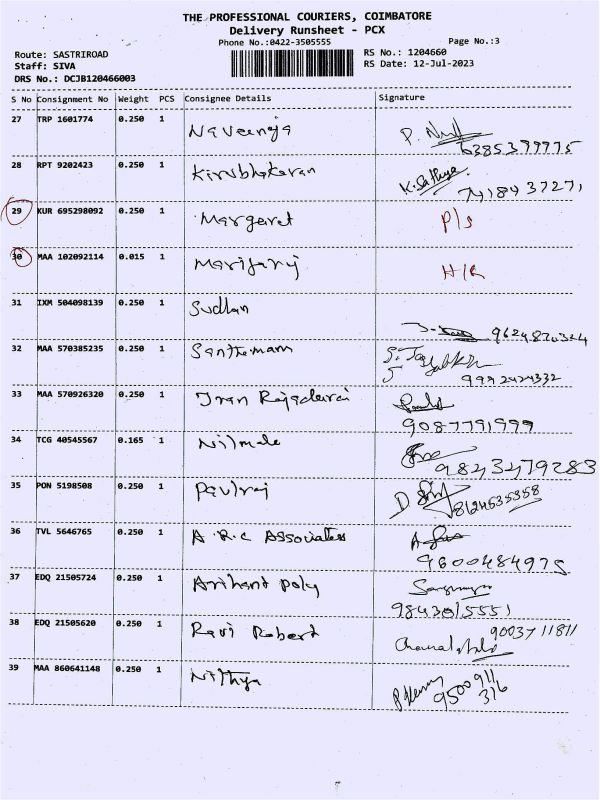 THE PROFESSIONAL COURIERS, COIMBATORE
Delivery Runsheet - PCX
Phone No.:0422-3505555 Page No.:3
Route: SASTRIROAD RS No.: 1204660
Staff: SIVA RS Date: 12-Jul-2023
DRS No.: DCJB120466003
S No Consignment No Weight PCS Consignee Details Signature
27 TRP 1601774 0.250 1 Naveenaja P. 6385379975
28 RPT 9202423 0.250 1 Kirubhakaran K. Sathya 7418437271
29 KUR 695298092 0.250 1 Margaret P/s
30 MAA 102092114 0.015 1 H/R
31 IXM 504098139 0.250 1 Sudhan 9624870324
32 MAA 570385235 0.250 1 Santhemam 9992424332
33 MAA 570926320 0.250 1 Rajadurai 9087791999
34 TCG 40545567 0.165 1 Nilmala 9843479283
35 PON 5198508 0.250 1 Paulraj D. 8124535358
36 TVL 5646765 0.250 1 A.R.C Associates 9600484975
37 EDQ 21505724 0.250 1 Arihant Poly 9843015551
38 EDQ 21505620 0.250 1 Ravi Robert 9003711811
39 MAA 860641148 0.250 1 Nithya 9500911316